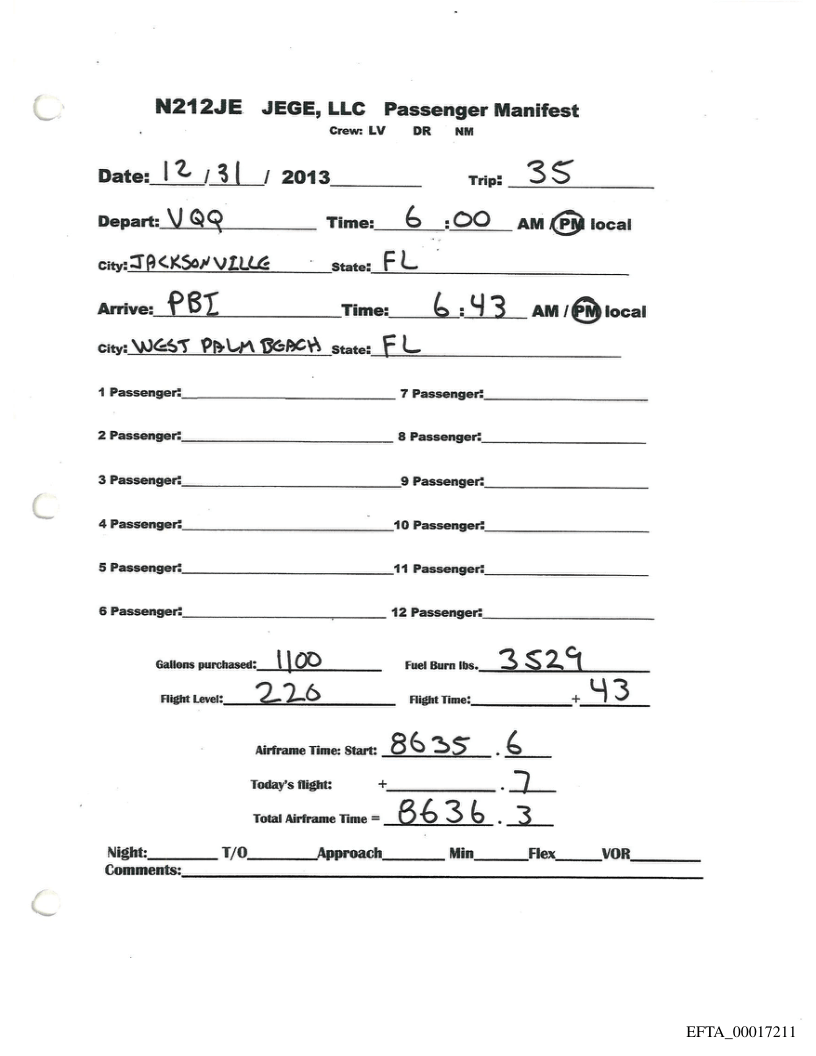 N212JE JEGE, LLC Passenger Manifest
Crew: LV DR NM
Date: 12 / 31 / 2013 Trip: 35
Depart: VQQ Time: 6 :00 AM / PM local
City: JACKSONVILLE State: FL
Arrive: PBI Time: 6:43 AM / PM local
City: WEST PALM BEACH State: FL
1 Passenger: 7 Passenger:
2 Passenger: 8 Passenger:
3 Passenger: 9 Passenger:
4 Passenger: 10 Passenger:
5 Passenger: 11 Passenger:
6 Passenger: 12 Passenger:
Gallons purchased: 1100 Fuel Burn lbs. 3529
Flight Level: 220 Flight Time: + 43
Airframe Time: Start: 8635 . 6
Today's flight: + . 7
Total Airframe Time = 8636 . 3
Night: T/O Approach Min Flex VOR
Comments:
EFTA_00017211